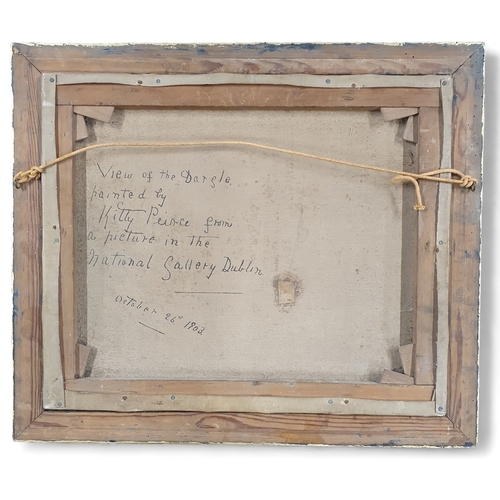 View of the Dargle
painted by
Kitty Peirce from
a picture in the
National Gallery Dublin
October 26" 1902